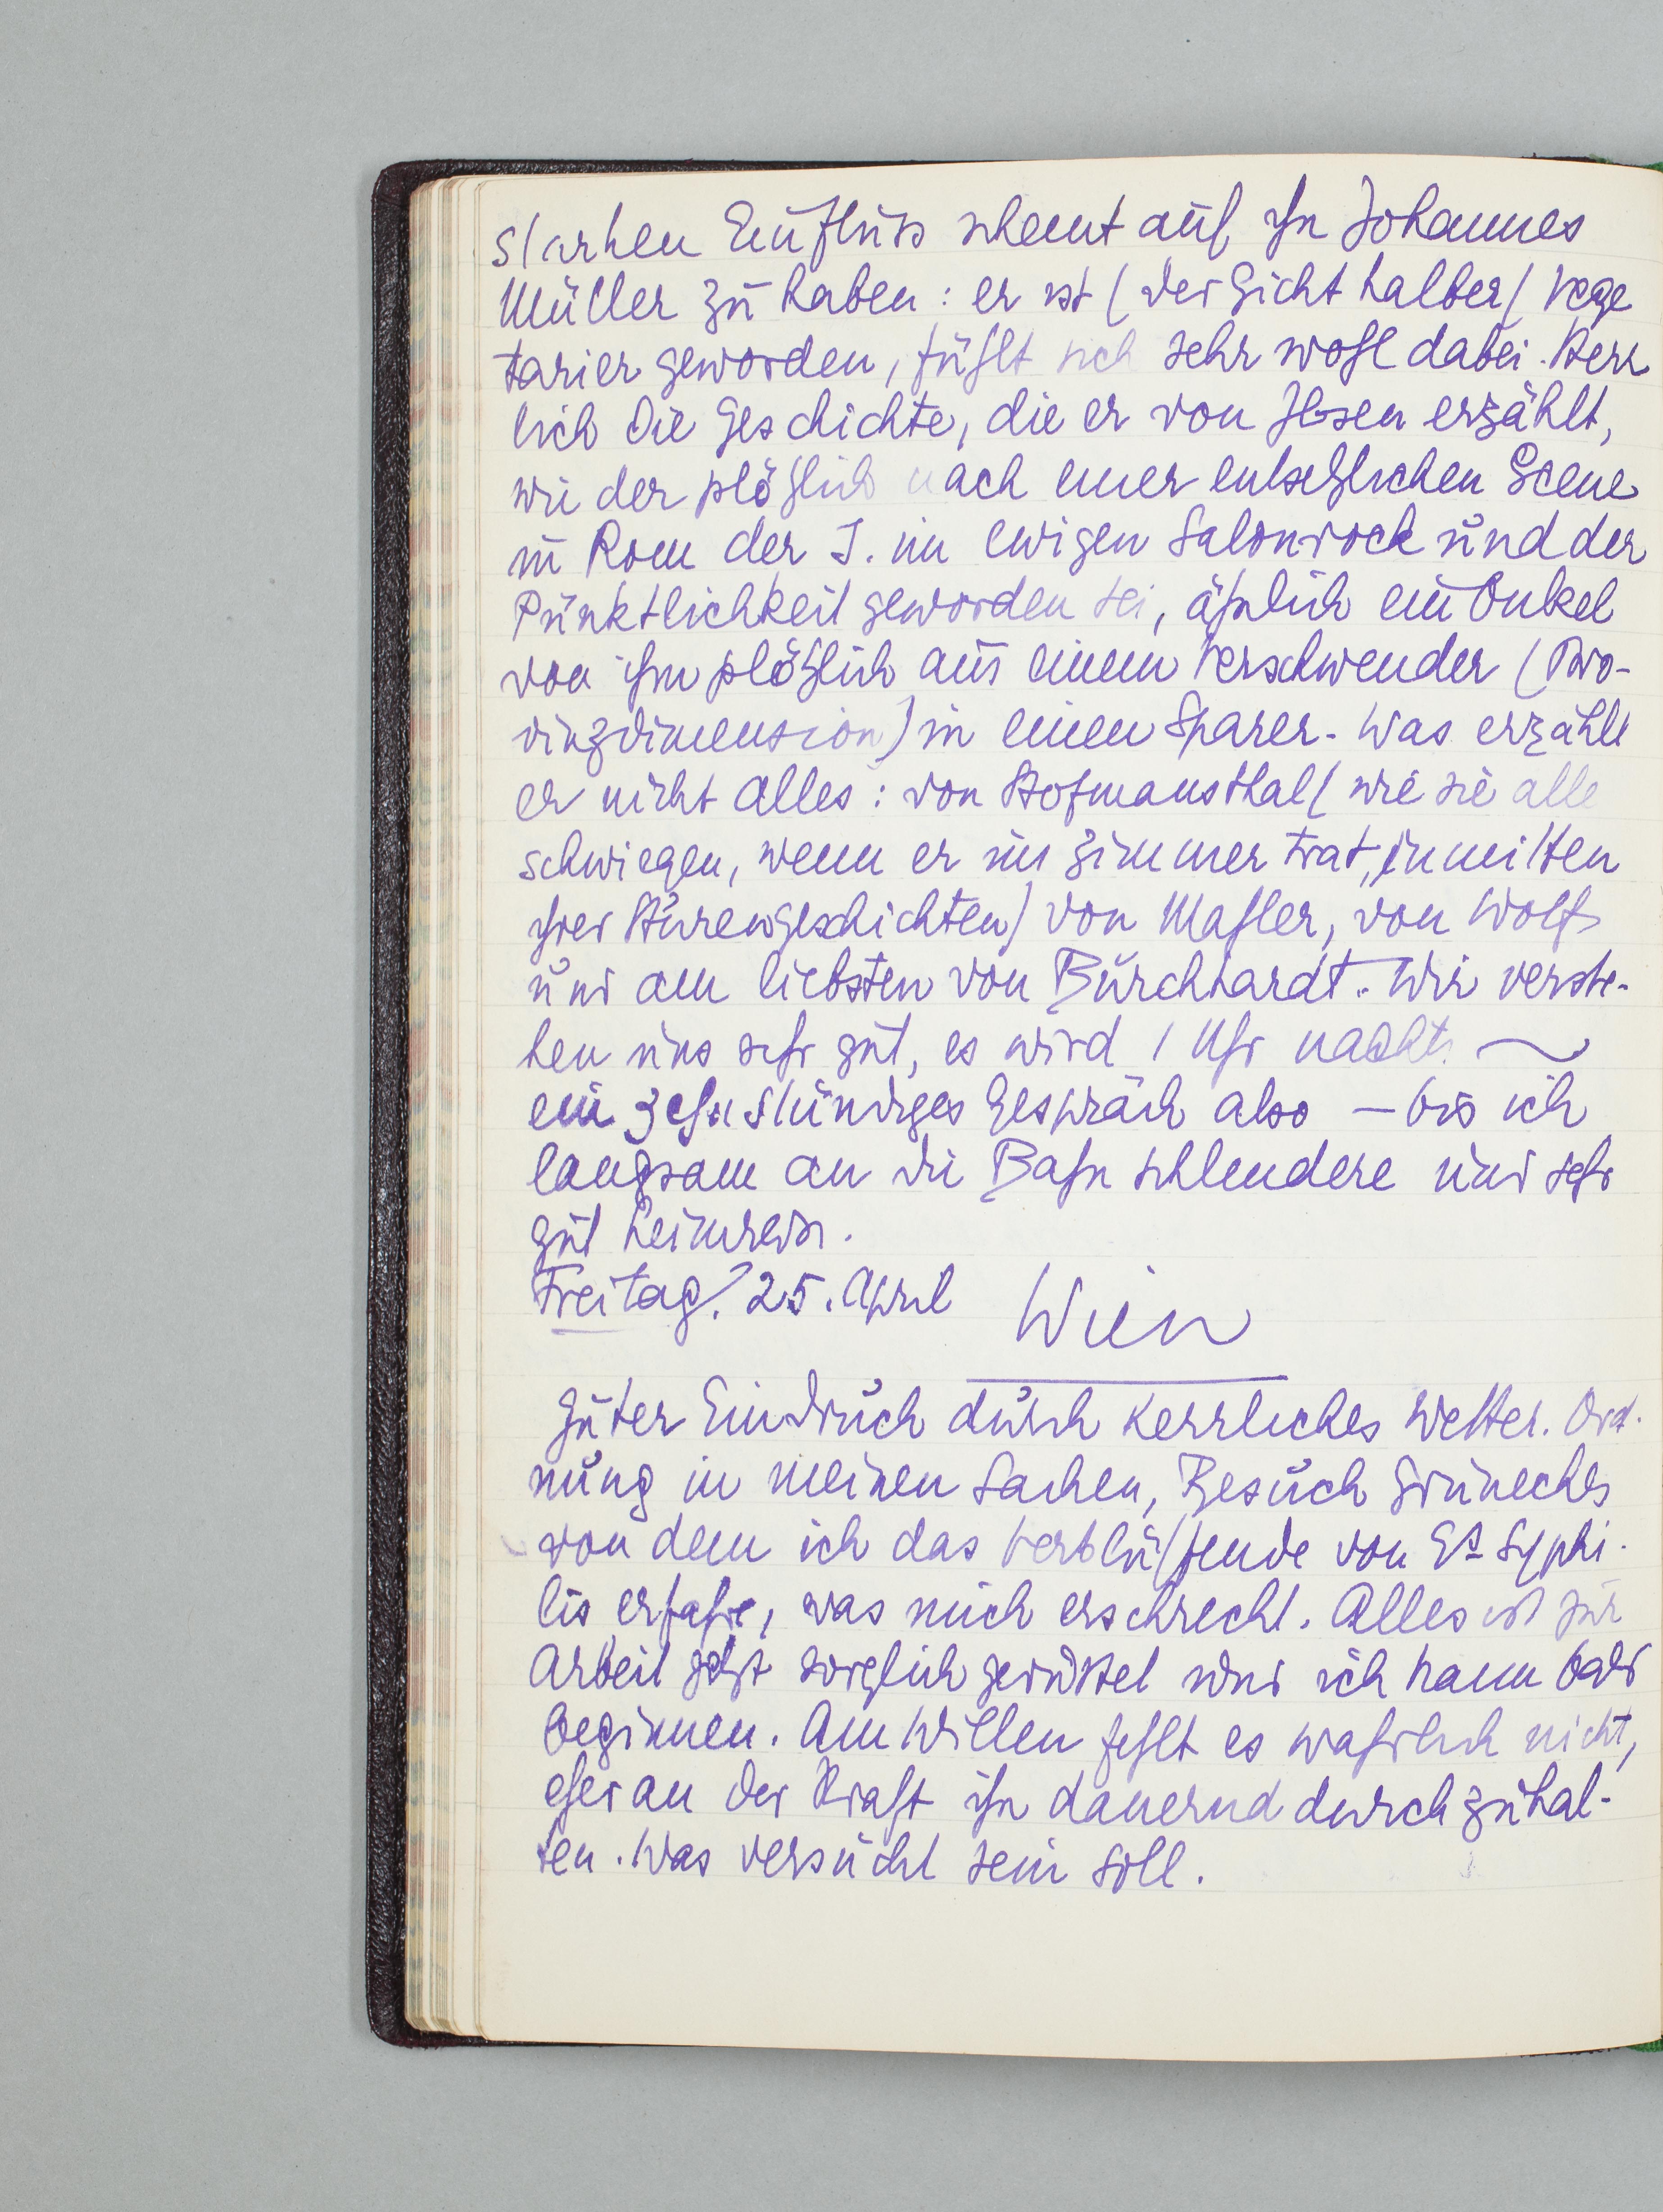 starken Einfluss scheint auf ihn Johannes
Müller zu haben: er ist (der Gicht halber) Vege
tarier geworden, fühlt sich sehr wohl dabei. Herr
lich die Geschichte, die er von Ibsen erzählt,
wie der plötzlich nach einer entsetzlichen Scene
in Rom der I. im ewigen Salonrock und der
Pünktlichkeit geworden sei, ähnlich ein Onkel
von ihm plötzlich aus einem Verschwender (Pro-
vinzdimension) in einen Sparer. Was erzählt
er nicht alles: von Hofmansthal (wie sie alle
schwiegen, wenn er ins Zimmer trat, inmitten
ihrer Hurengeschichten) von Mahler, von Wolf
und am liebsten von Burckhardt. Wir verste-
hen uns sehr gut, es wird 1 Uhr nachts —
ein zehnstündiges Gespräch also — bis ich
langsam an die Bahn schlendere und sehr
gut heimreise.
Freitag! 25. April Wien
Guter Eindruck durch herrliches Wetter. Ord-
nung in meinen Sachen, Besuch
von dem ich das Verblüffende von Syphi-
lis erfahre, was mich erschreckt. Alles ist zur
Arbeit jetzt sorglich gerüstet und ich kann bald
beginnen. Am Willen fehlt es wahrlich nicht,
eher an der Kraft ihn dauernd durchzuhal-
ten. Was versucht sein soll.